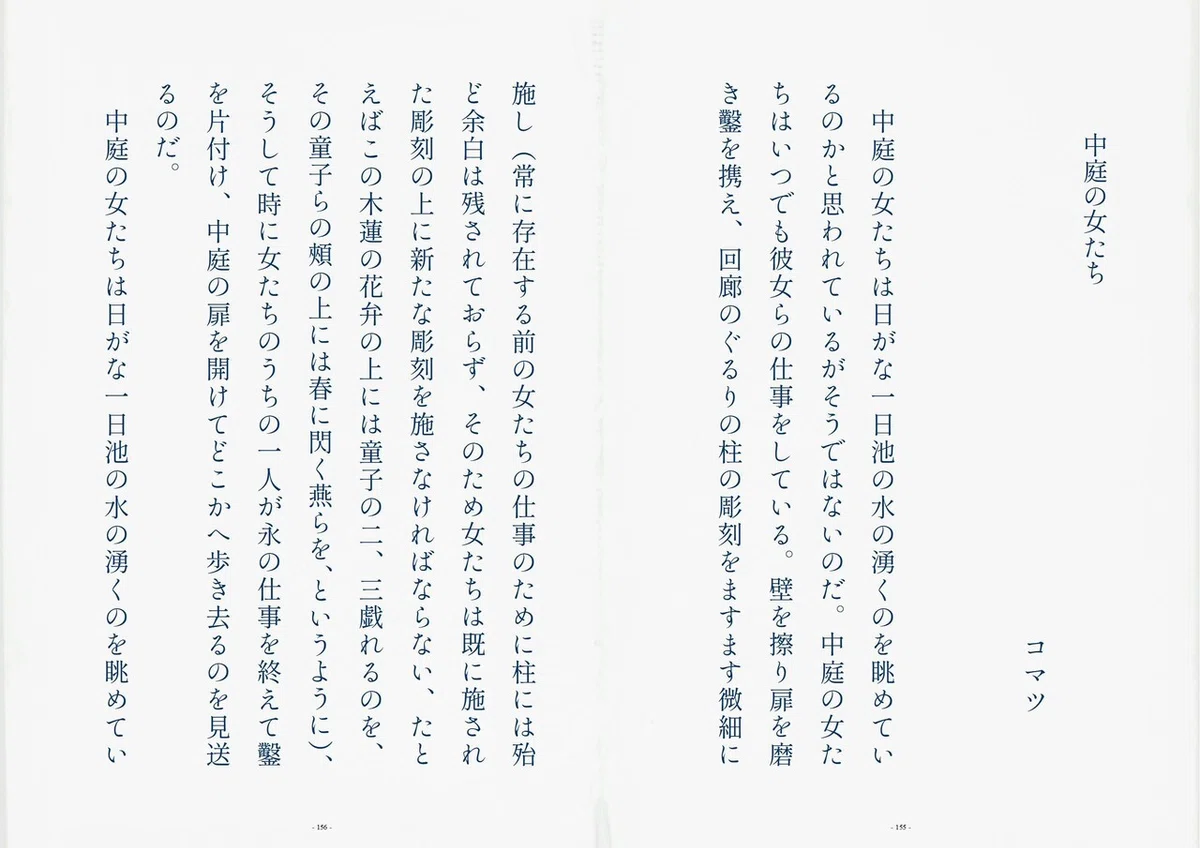 中庭の女たち
コマツ
中庭の女たちは日がな一日池の水の湧くのを眺めてい
るのかと思われているがそうではないのだ。中庭の女た
ちはいつでも彼女らの仕事をしている。壁を擦り扉を磨
き鑿を携え、回廊のぐるりの柱の彫刻をますます微細に
- 155 -
施し（常に存在する前の女たちの仕事のために柱には殆
ど余白は残されておらず、そのため女たちは既に施され
た彫刻の上に新たな彫刻を施さなければならない、たと
えばこの木蓮の花弁の上には童子の二、三戯れるのを、
その童子らの頰の上には春に閃く燕らを、というように）、
そうして時に女たちのうちの一人が永の仕事を終えて鑿
を片付け、中庭の扉を開けてどこかへ歩き去るのを見送
るのだ。
中庭の女たちは日がな一日池の水の湧くのを眺めてい
- 156 -